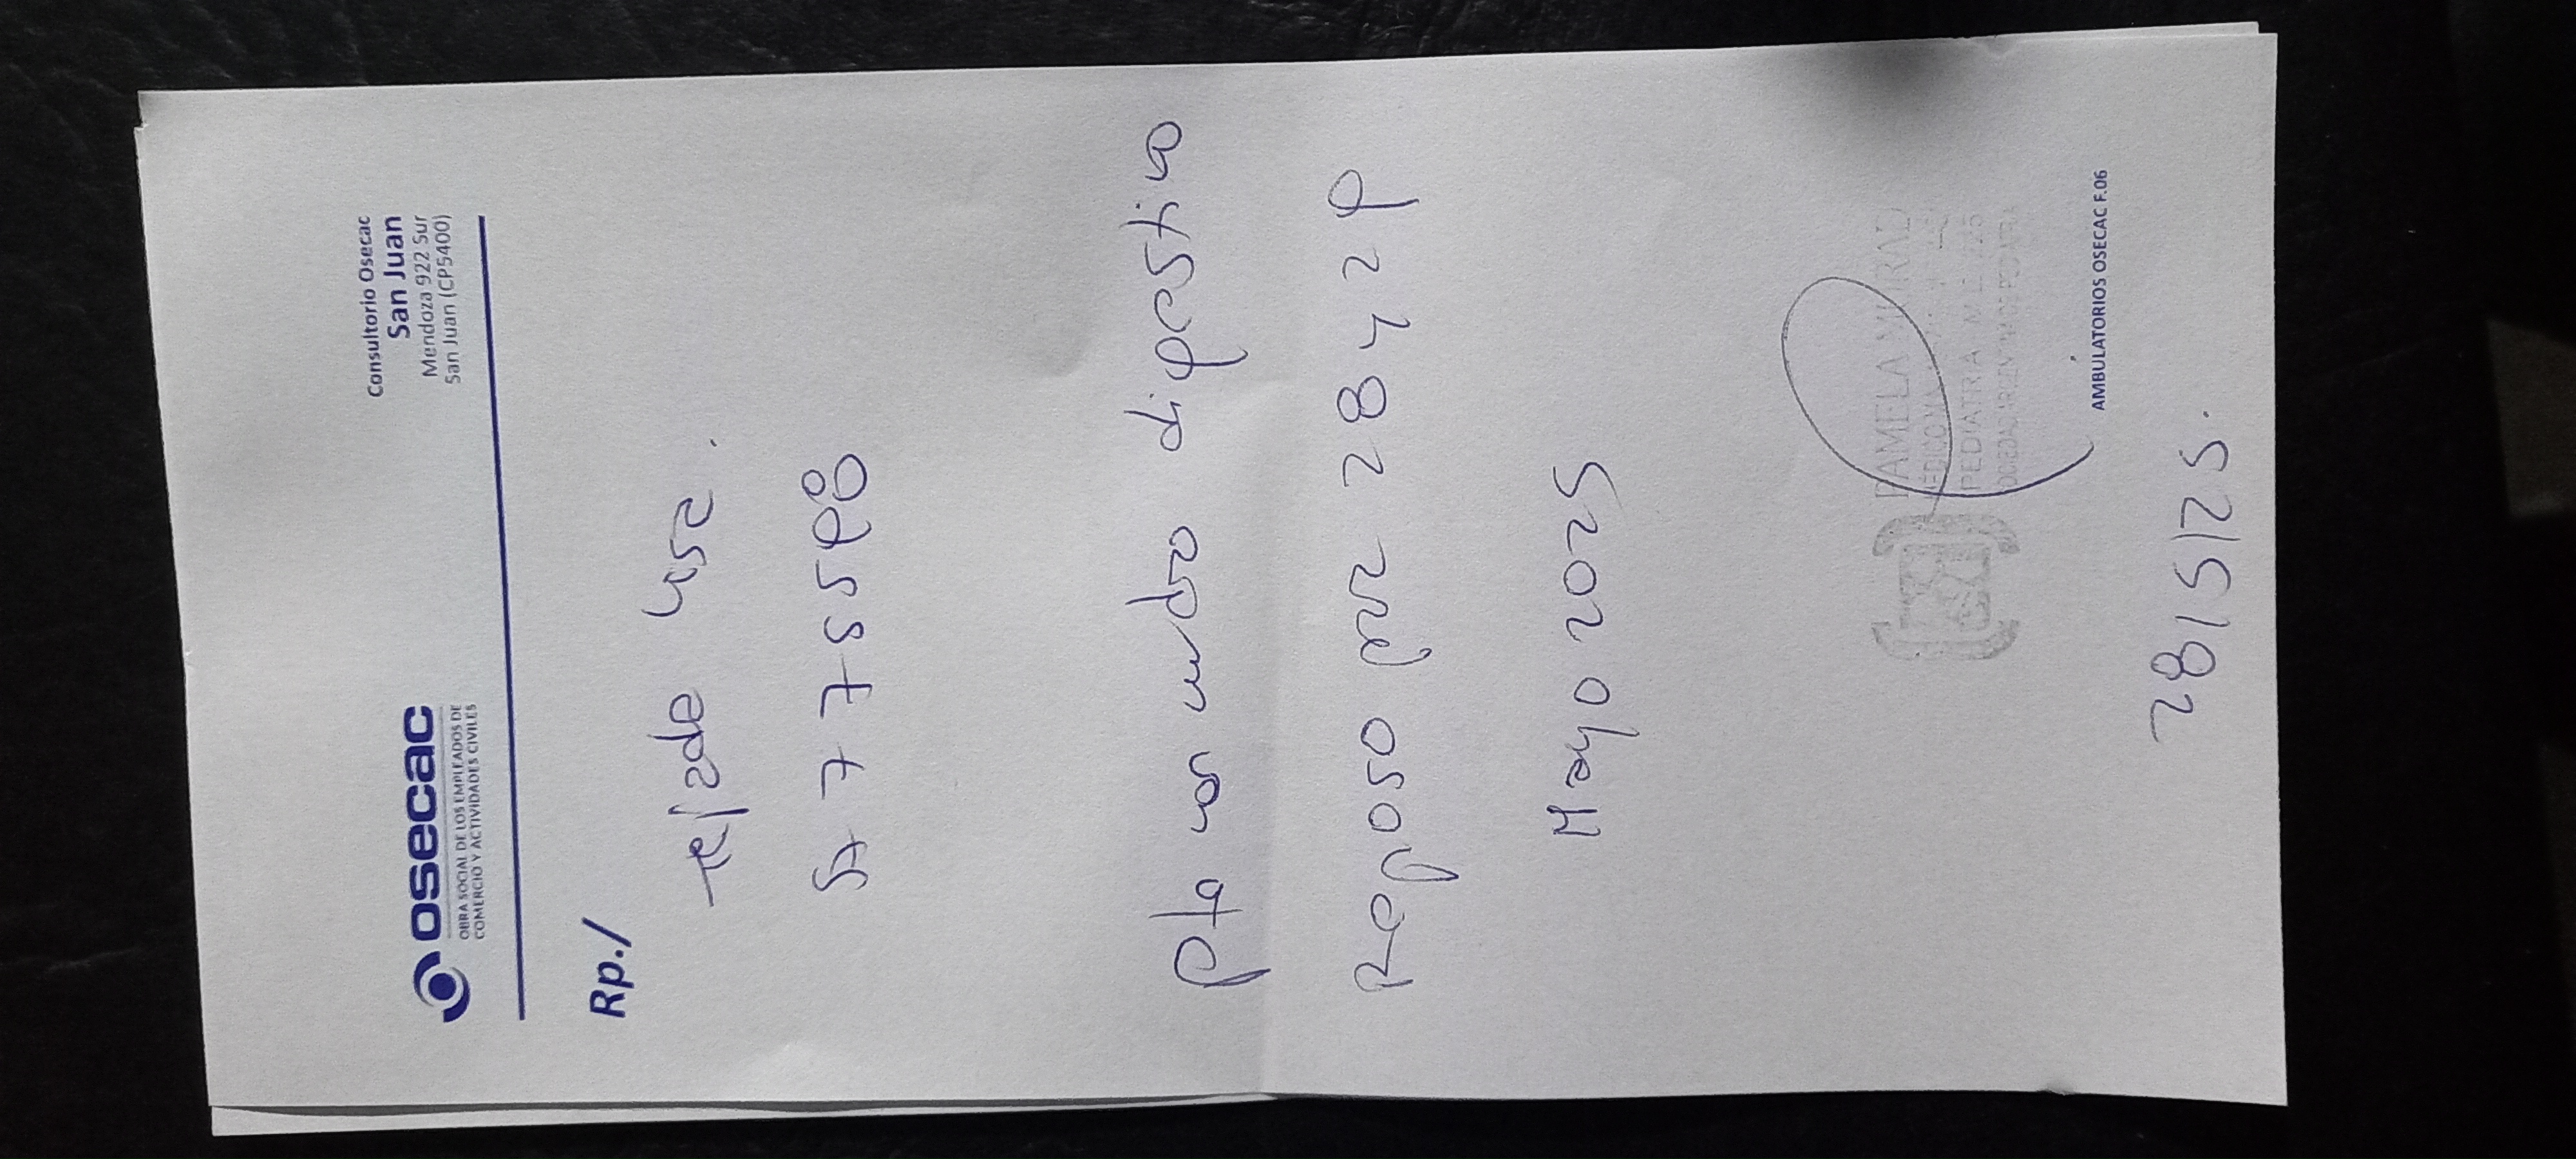 osecac
OBRA SOCIAL DE LOS EMPLEADOS DE
COMERCIO Y ACTIVIDADES CIVILES
Consultorio Osecac
San Juan
Mendoza 922 Sur
San Juan (CP5400)
Rp./
Tejade
Pte con cuadro digestivo
Reposo por 28 y 29
Mayo 2025
PAMELA
PEDIATRIA
AMBULATORIOS OSECAC F.06
28/5/25.